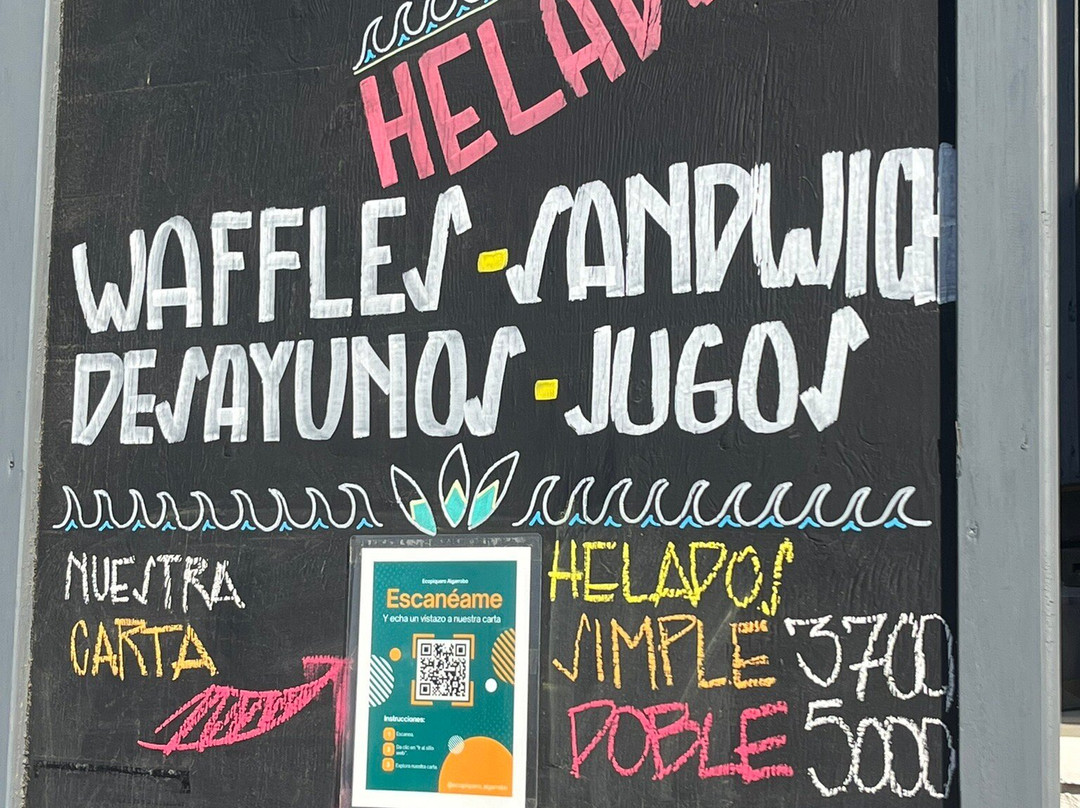 HELAD
WAFFLES · SANDWICH
DESAYUNOS · JUGOS
NUESTRA
CARTA
Ecopiquero Algarrobo
Escanéame
Y echa un vistazo a nuestra carta
Instrucciones:
1 Escanea.
2 Da clic en "Ir al sitio
web".
3 Explora nuestra carta
@ecopiquero_algarrobo
HELADOS
SIMPLE 3700
DOBLE 5000